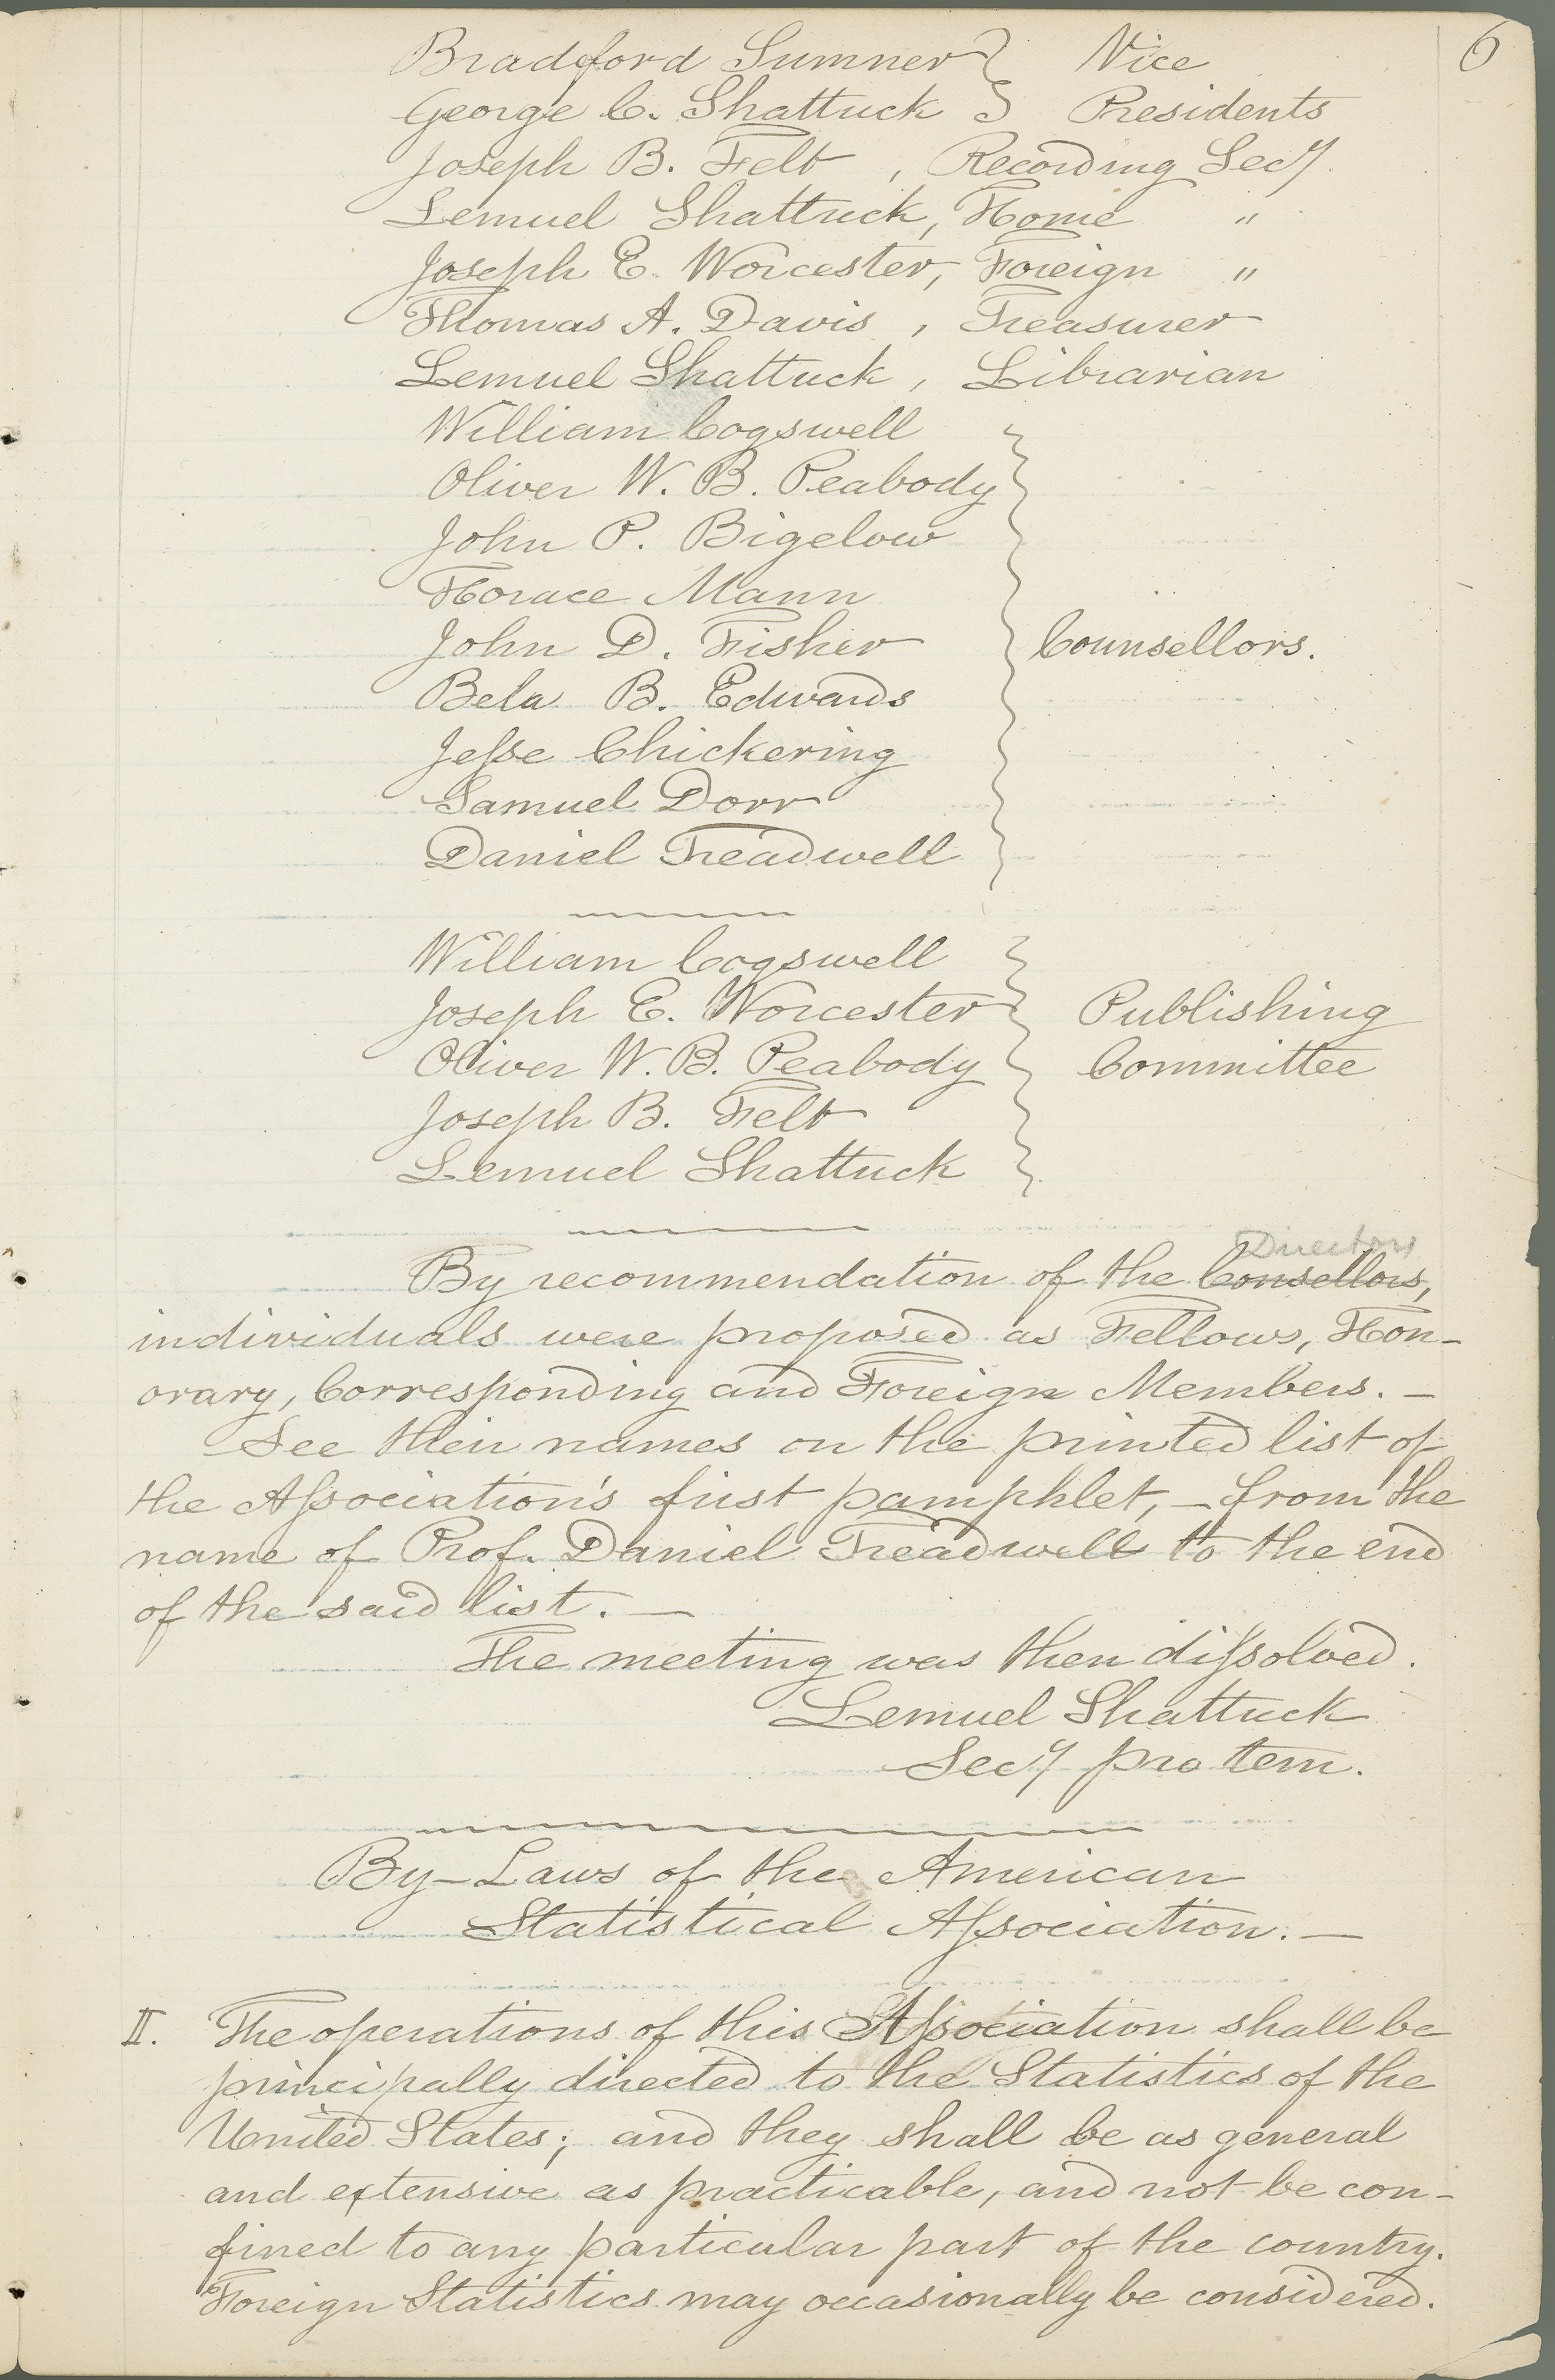 6
Bradford Sumner } Vice
George C. Shattuck } Presidents
Joseph B. Felt, Recording Secy.
Lemuel Shattuck, Home "
Joseph E. Worcester, Foreign "
Thomas A. Davis, Treasurer
Lemuel Shattuck, Librarian
William Cogswell
Oliver W. B. Peabody
John P. Bigelow
Horace Mann
John D. Fisher } Counsellors.
Bela B. Edwards
Jeſse Chickering
Samuel Dorr
Daniel Treadwell
William Cogswell
Joseph E. Worcester } Publishing
Oliver W. B. Peabody } Committee
Joseph B. Felt
Lemuel Shattuck
Directors
By recommendation of the Consellors,
individuals were proposed as Fellows, Hon-
orary, Corresponding and Foreign Members. —
See their names on the printed list of
the Aſsociation's first pamphlet, — from the
name of Prof. Daniel Treadwell to the end
of the said list. —
The meeting was then diſsolved.
Lemuel Shattuck
Secy pro tem.
By-Laws of the American
Statistical Aſsociation. —
II. The operations of this Aſsociation shall be
principally directed to the Statistics of the
United States; and they shall be as general
and extensive as practicable, and not be con-
fined to any particular part of the country.
Foreign Statistics may occasionally be considered.